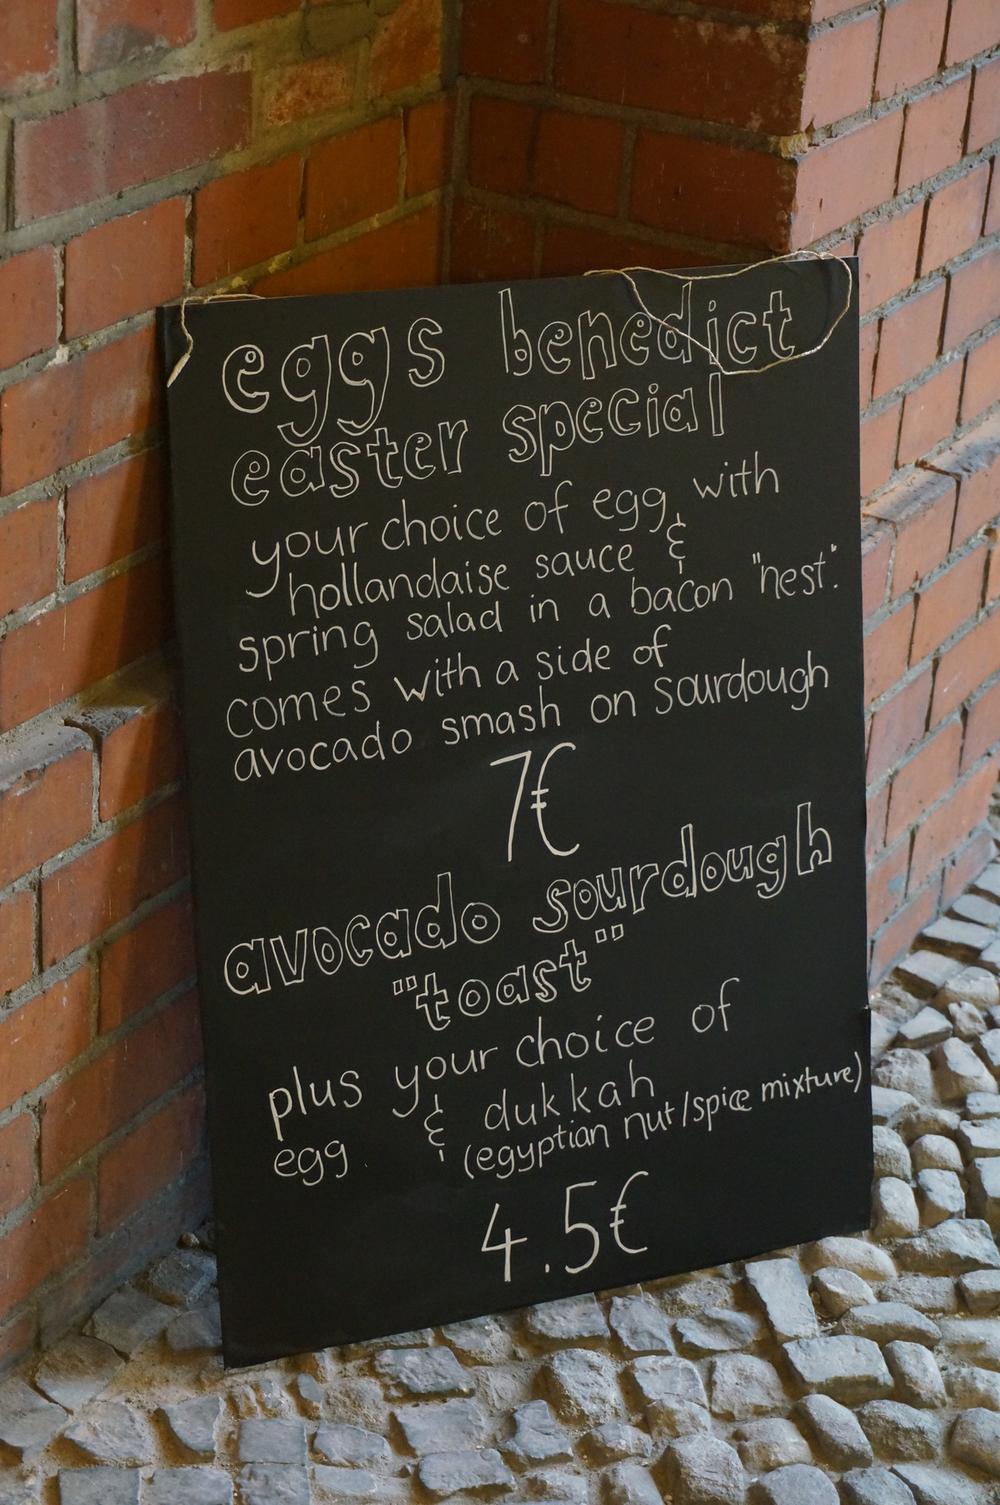 eggs benedict
easter special
your choice of egg with
hollandaise sauce &
spring salad in a bacon "nest".
comes with a side of
avocado smash on sourdough
7€
avocado sourdough
"toast"
plus your choice of
egg & dukkah
(egyptian nut/spice mixture)
4.5€